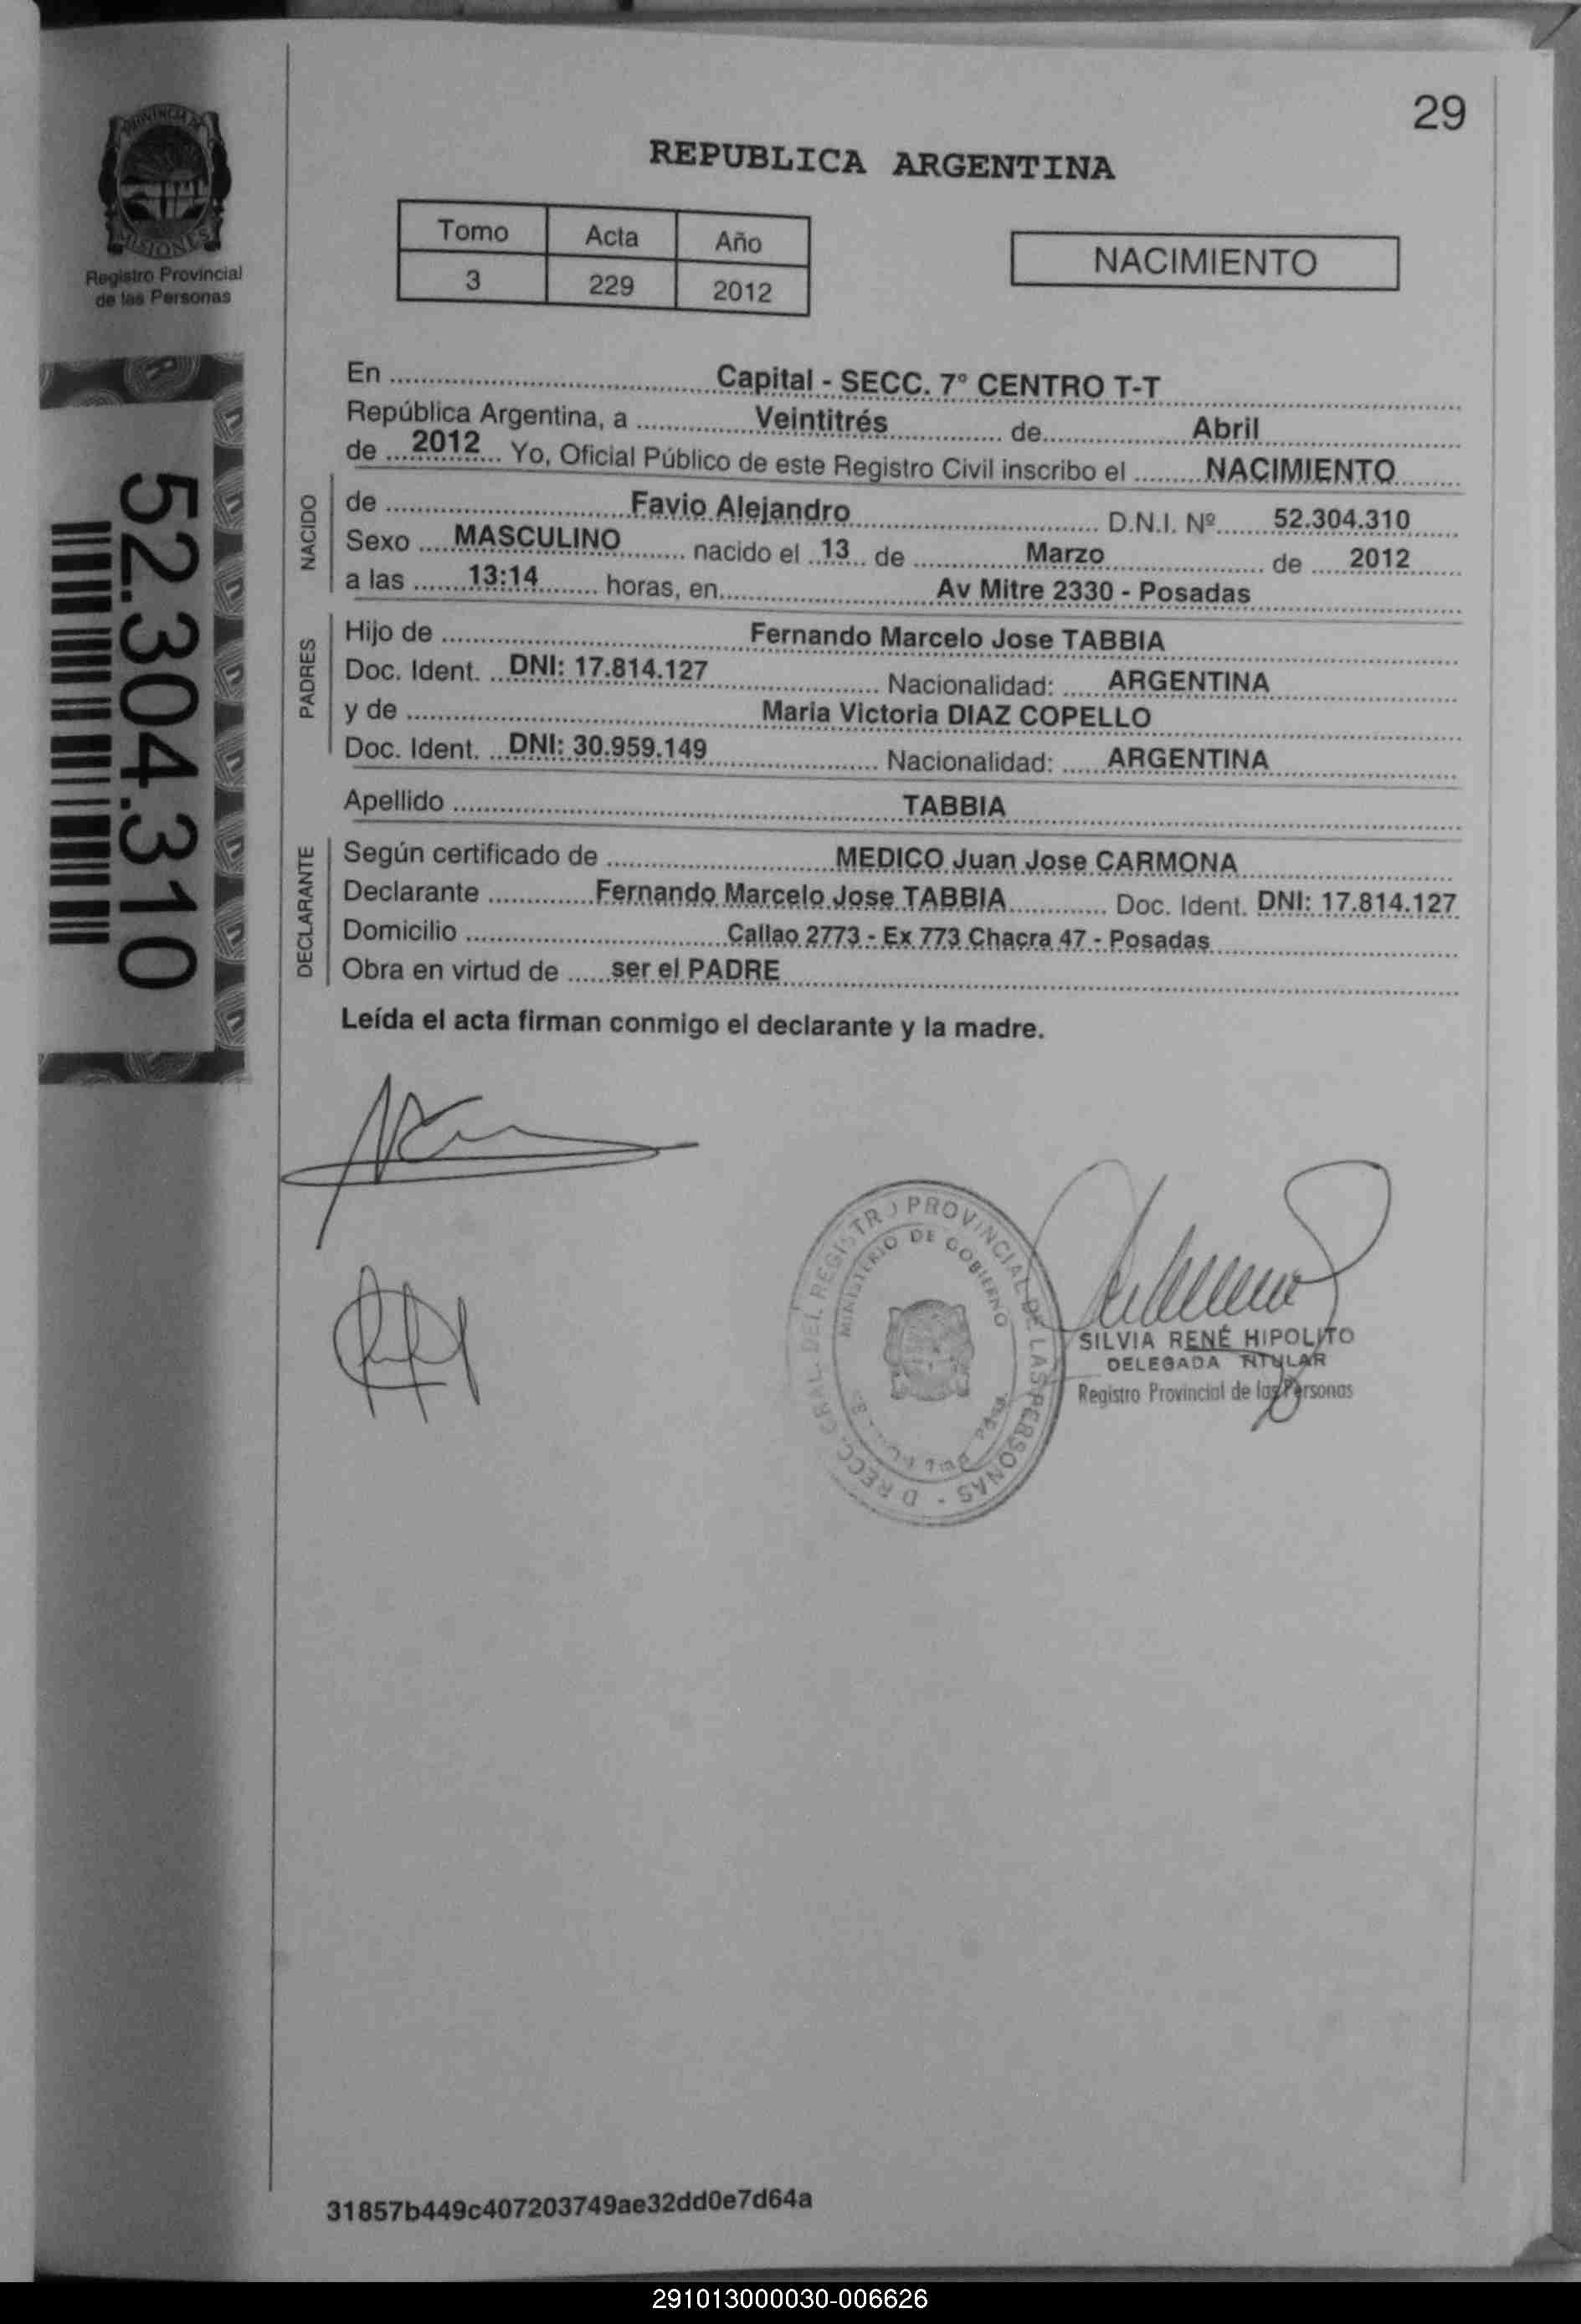 29
PROVINCIA DE
MISIONES
Registro Provincial
de las Personas
REPUBLICA ARGENTINA
Tomo Acta Año
3 229 2012
NACIMIENTO
52.304.310
En ........ Capital - SECC. 7° CENTRO T-T ........
República Argentina, a ........ Veintitrés ........ de ........ Abril ........
de .... 2012 .... Yo, Oficial Público de este Registro Civil inscribo el ........ NACIMIENTO ........
NACIDO
de ........ Favio Alejandro ........ D.N.I. Nº ...... 52.304.310
Sexo .... MASCULINO ........ nacido el .. 13 .. de ........ Marzo ........ de ..... 2012 ......
a las ...... 13:14 ........ horas, en ........ Av Mitre 2330 - Posadas ........
PADRES
Hijo de ........ Fernando Marcelo Jose TABBIA ........
Doc. Ident. ... DNI: 17.814.127 ........ Nacionalidad: ...... ARGENTINA ........
y de ........ Maria Victoria DIAZ COPELLO ........
Doc. Ident. ... DNI: 30.959.149 ........ Nacionalidad: ...... ARGENTINA ........
Apellido ........ TABBIA ........
DECLARANTE
Según certificado de ........ MEDICO Juan Jose CARMONA ........
Declarante ........ Fernando Marcelo Jose TABBIA ........ Doc. Ident. DNI: 17.814.127
Domicilio ........ Callao 2773 - Ex 773 Chacra 47 - Posadas ........
Obra en virtud de ...... ser el PADRE ........
Leída el acta firman conmigo el declarante y la madre.
REGISTRO PROVINCIAL DE LAS PERSONAS
MINISTERIO DE GOBIERNO
SILVIA RENÉ HIPOLITO
DELEGADA TITULAR
Registro Provincial de las Personas
31857b449c407203749ae32dd0e7d64a
291013000030-006626